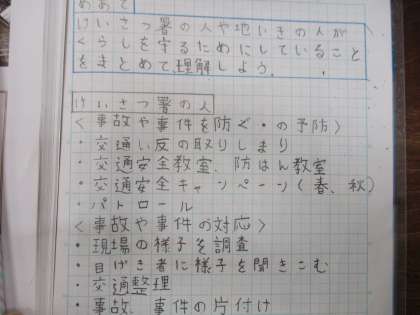 めあて
けいさつ署の人や地いきの人が
くらしを守るためにしていること
をまとめて、理解しよう。
けいさつ署の人
＜事故や事件を防ぐ・の予防＞
・交通い反の取りしまり
・交通安全教室、防はん教室
・交通安全キャンペーン(春、秋)
・パトロール
＜事故や事件の対応＞
・現場の様子を調査
・目げき者に様子を聞きこむ
・交通整理
・事故、事件の片付け